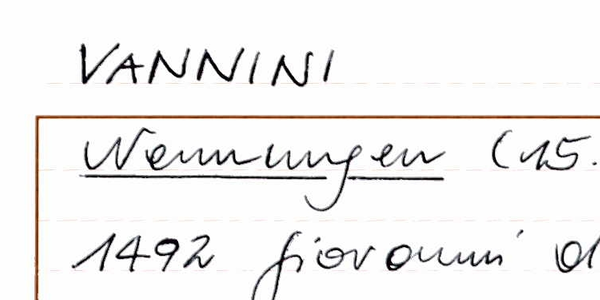 VANNINI
Nennungen (15.
1492 Giovanni d